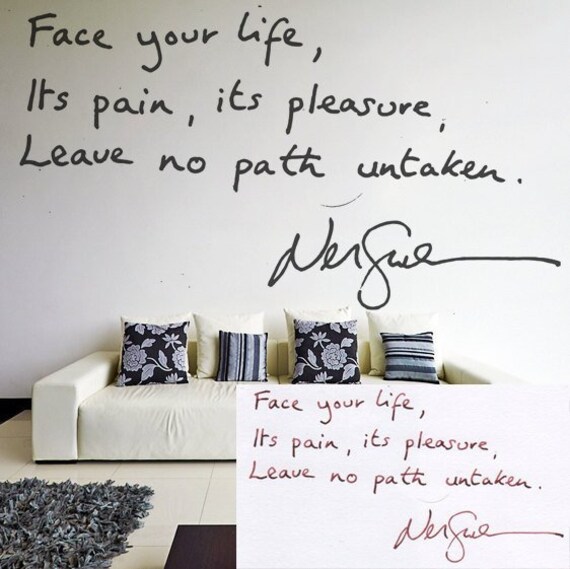 Face your life,
Its pain, its pleasure,
Leave no path untaken.
Neil Gaiman
Face your life,
Its pain, its pleasure,
Leave no path untaken.
Neil Gaiman